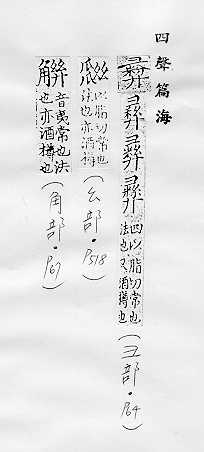 四聲篇海
四以脂切常也
法也又酒樽也
以脂切常也
法也亦酒樽
(幺部·P518)
音夷常也法
也亦酒樽也
(角部·P67)